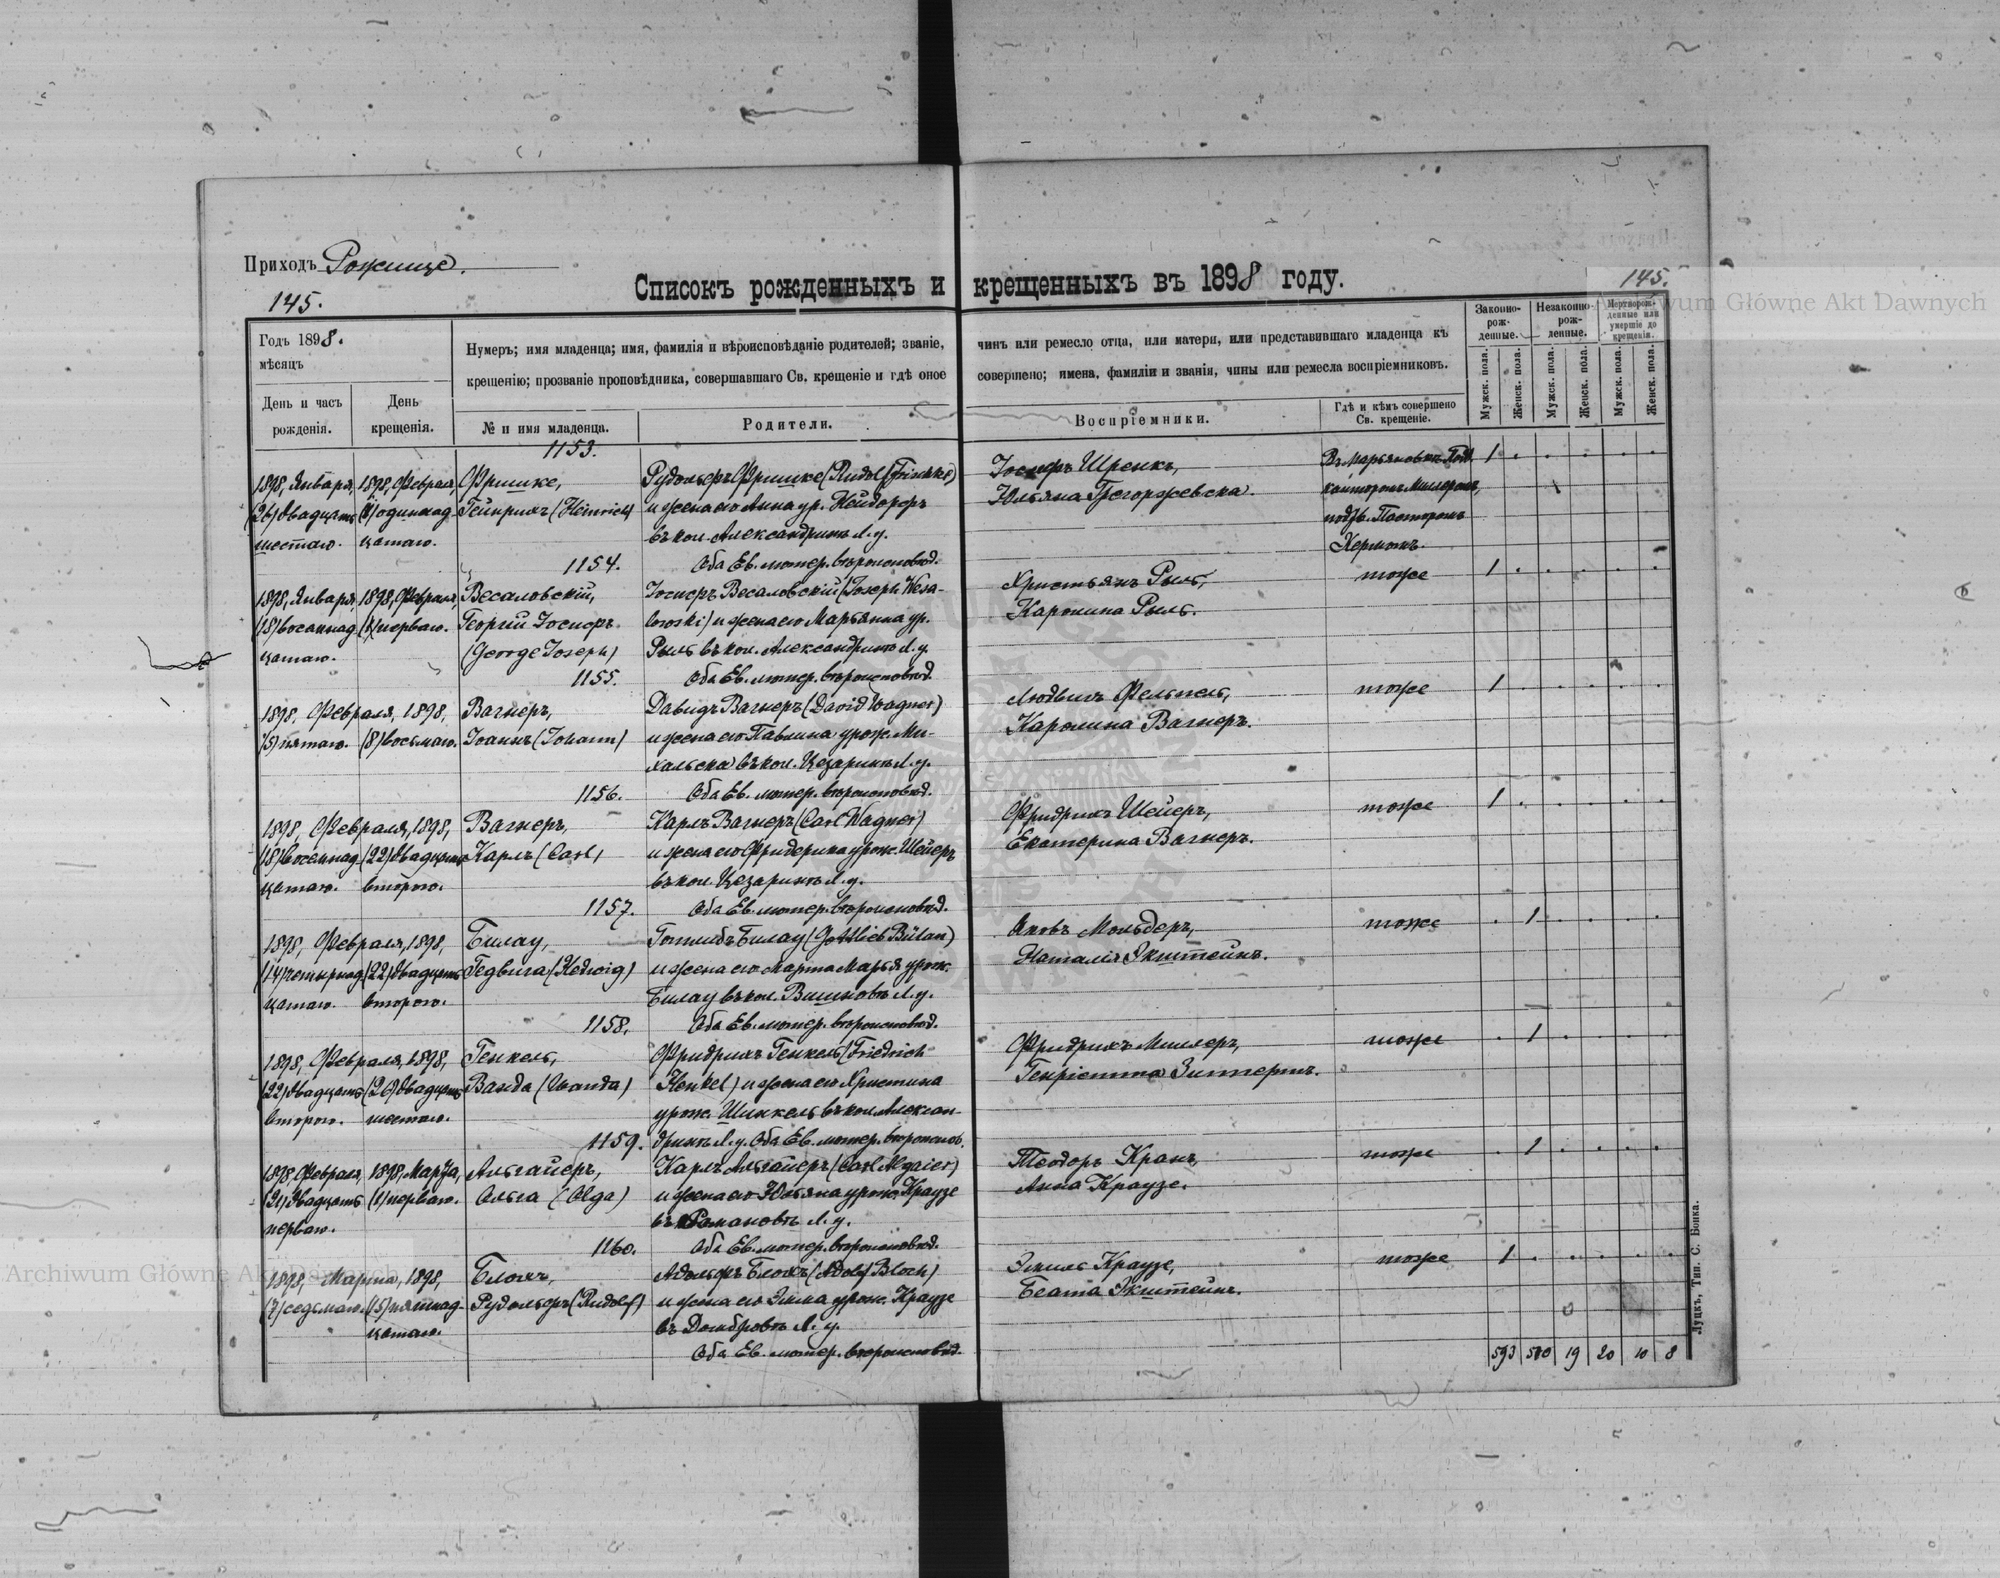 Приходъ Рожище.
145.
Списокъ рожденныхъ и крещенныхъ въ 1898 году.
145.
Archiwum Główne Akt Dawnych
Годъ 1898.
мѣсяцъ
День и часъ
рожденія.
День
крещенія.
Нумеръ; имя младенца; имя, фамилія и вѣроисповѣданіе родителей; званіе,
крещенію; прозваніе проповѣдника, совершавшаго Св. крещеніе и гдѣ оное
№ и имя младенца.
Родители.
чинъ или ремесло отца, или матери, или представившаго младенца къ
совершено; имена, фамиліи и званія, чины или ремесла воспріемниковъ.
Воспріемники.
Гдѣ и кѣмъ совершено
Св. крещеніе.
Законно-
рож-
денные.
Незаконно-
рож-
денные.
Мертворож-
денные или
умершіе до
крещенія.
Мужск. пола.
Женск. пола.
Мужск. пола.
Женск. пола.
Мужск. пола.
Женск. пола.
1153.
1898, Января, 1898, Февраля, Фришке, Рудольфъ Фришке (Rudolf Frischke) Іосифъ Шренкъ, 1
(26) двадцать (11) одиннад- Гейнрихъ (Heinrich) и жена его Анна ур. Нейдорфъ Юльяна Грегоржевска.
шестаго. цатаго. въ кол. Александринъ Л. у. Пасторомъ
1154. Оба Ев. лютер. вѣроисповѣд.
1898, Января, 1898, Февраля, Весаловскій, Іосифъ Весаловскій (Joseph Wesa- Христьянъ Рыль, тоже 1
(18) восемнад- (1) перваго. Георгій Іосифъ lowski) и жена его Марьянна ур. Каролина Рыль.
цатаго. (George Joseph) Рыль въ кол. Александринъ Л. у.
1155. Оба Ев. лютер. вѣроисповѣд.
1898, Февраля, 1898, Вагнеръ, Давидъ Вагнеръ (David Wagner) Людвигъ тоже 1
(5) пятаго. (8) восьмаго. Іоаннъ (Johann) и жена его Павлина урож. Ми- Каролина Вагнеръ.
хальска въ кол. Цезаринъ Л. у.
1156. Оба Ев. лютер. вѣроисповѣд.
1898, Февраля, 1898, Вагнеръ, Карлъ Вагнеръ (Carl Wagner) Фридрихъ Шейеръ, тоже 1
(18) восемнад- (22) двадцать Карлъ (Carl) и жена его Фридерика урож. Шейеръ Екатерина Вагнеръ.
цатаго. втораго. въ кол. Цезаринъ Л. у.
1157. Оба Ев. лютер. вѣроисповѣд.
1898, Февраля, 1898, Билау, Готлибъ Билау (Gottlieb Bülau) Яковъ Мольдеръ, тоже 1
(14) четырнад- (22) двадцать Гедвига (Hedwig) и жена его Марта Марья урож. Наталія Экштейнъ.
цатаго. втораго. Билау въ кол. Вишневъ Л. у.
1158. Оба Ев. лютер. вѣроисповѣд.
1898, Февраля, 1898, Генкель, Фридрихъ Генкель (Friedrich Фридрихъ Миллеръ, тоже 1
(22) двадцать (26) двадцать Ванда (Wanda) Henkel) и жена его Христина Генріетта
втораго. шестаго. урож. Шинкель въ кол. Алексан-
1159. дринъ Л. у. Оба Ев. лютер. вѣроисповѣд.
1898, Февраля, 1898, Марта, Альгайеръ, Карлъ Альгайеръ (Carl Algaier) Теодоръ Кранъ, тоже 1
(21) двадцать (1) перваго. Ольга (Olga) и жена его Юльяна урож. Краузе Анна Краузе.
перваго. въ Романовъ Л. у.
1160. Оба Ев. лютер. вѣроисповѣд.
1898, Марта, 1898, Блохъ, Адольфъ Блохъ (Adolf Bloch) Эмиль Краузе, тоже 1
(7) седьмаго. (15) пятнад- Рудольфъ (Rudolf) и жена его Эмма урож. Краузе Беата Экштейнъ.
цатаго. въ Домбровъ Л. у.
Оба Ев. лютер. вѣроисповѣд.
593 19 20 10 8
Луцкъ, Тип. С. Бонка.
Archiwum Główne Akt Dawnych